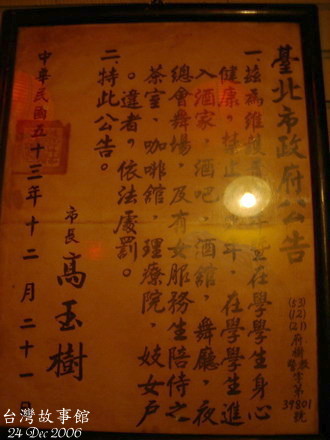 臺北市政府公告
(53)
(12)
(21)府樹教
警字第
39801
號
一.茲為維護青年暨在學學生身心
健康，禁止年，在學學生進
入酒家，酒吧，酒館，舞廳，夜
總會舞場，及有女服務生陪侍之
茶室，咖啡館，理療院，妓女戶
。違者，依法處罰。
二.特此公告。
市長 高玉樹
中華民國五十三年十二月二十一日
台灣故事館
24 Dec 2006